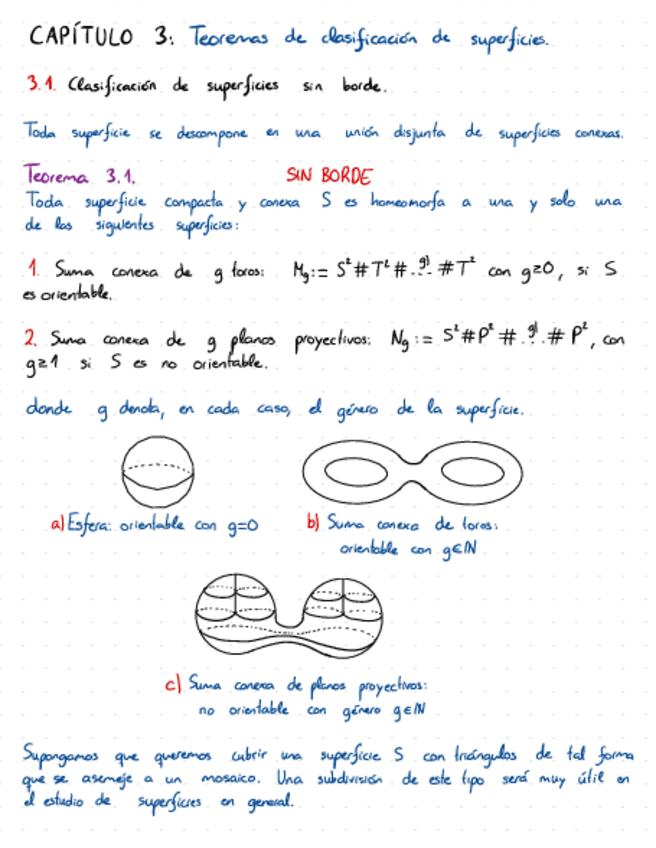 CAPÍTULO 3: Teoremas de clasificación de superficies.
3.1. Clasificación de superficies sin borde.
Toda superficie se descompone en una unión disjunta de superficies conexas.
Teorema 3.1. SIN BORDE
Toda superficie compacta y conexa S es homeomorfa a una y solo una
de las siguientes superficies:
1. Suma conexa de g toros: Mg := S² # T² # .g). # T² con g≥0, si S
es orientable.
2. Suma conexa de g planos proyectivos: Ng := S² # P² # .g). # P², con
g≥1 si S es no orientable.
donde g denota, en cada caso, el género de la superficie.
a) Esfera: orientable con g=0
b) Suma conexa de toros:
orientable con g∈ℕ
c) Suma conexa de planos proyectivos:
no orientable con género g∈ℕ
Supongamos que queremos cubrir una superficie S con triángulos de tal forma
que se asemeje a un mosaico. Una subdivisión de este tipo será muy útil en
el estudio de superficies en general.